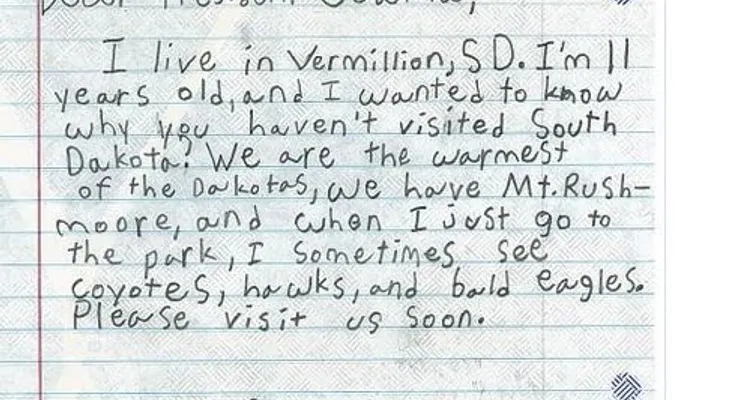 I live in Vermillion, SD. I'm 11
years old, and I wanted to know
why you haven't visited South
Dakota? We are the warmest
of the Dakotas, we have Mt. Rush-
moore, and when I just go to
the park, I sometimes see
coyotes, hawks, and bald eagles.
Please visit us soon.